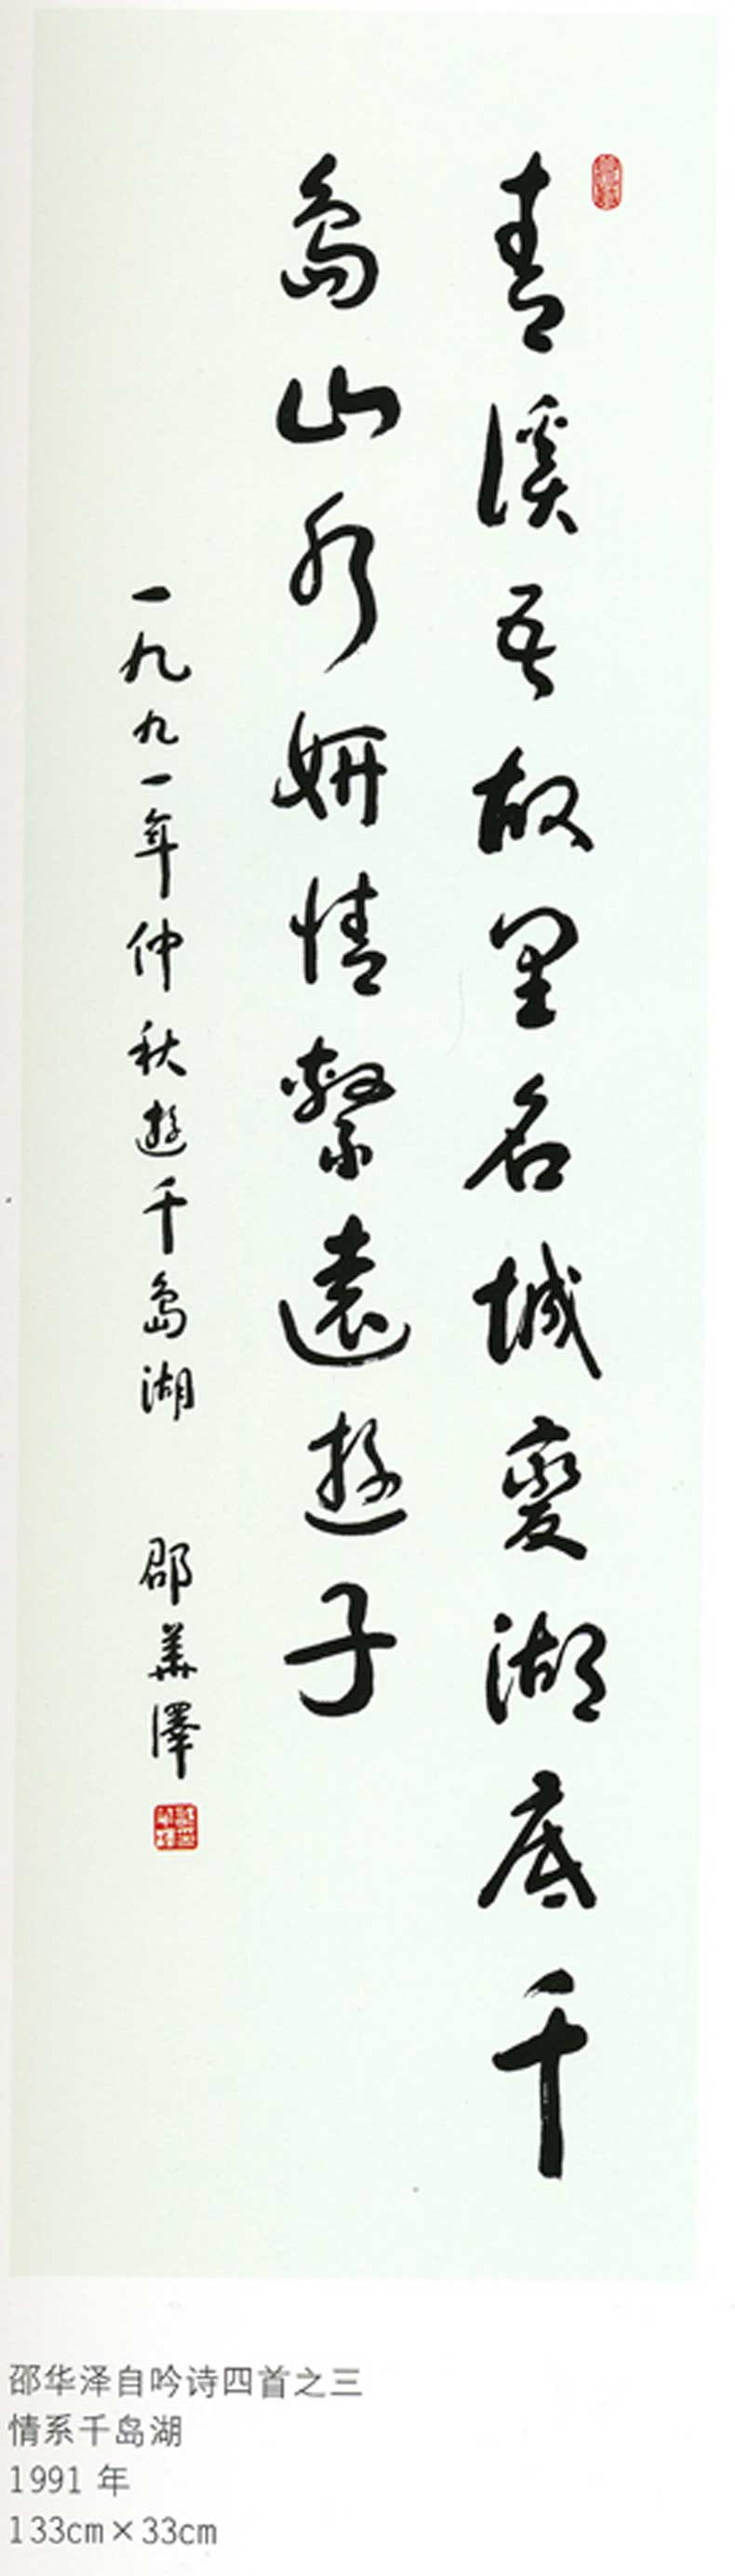 青溪吾故里名城變湖底千
島山水妍情繫遠遊子
一九九一年仲秋遊千島湖 邵華澤
邵华泽自吟诗四首之三
情系千岛湖
1991 年
133cm×33cm